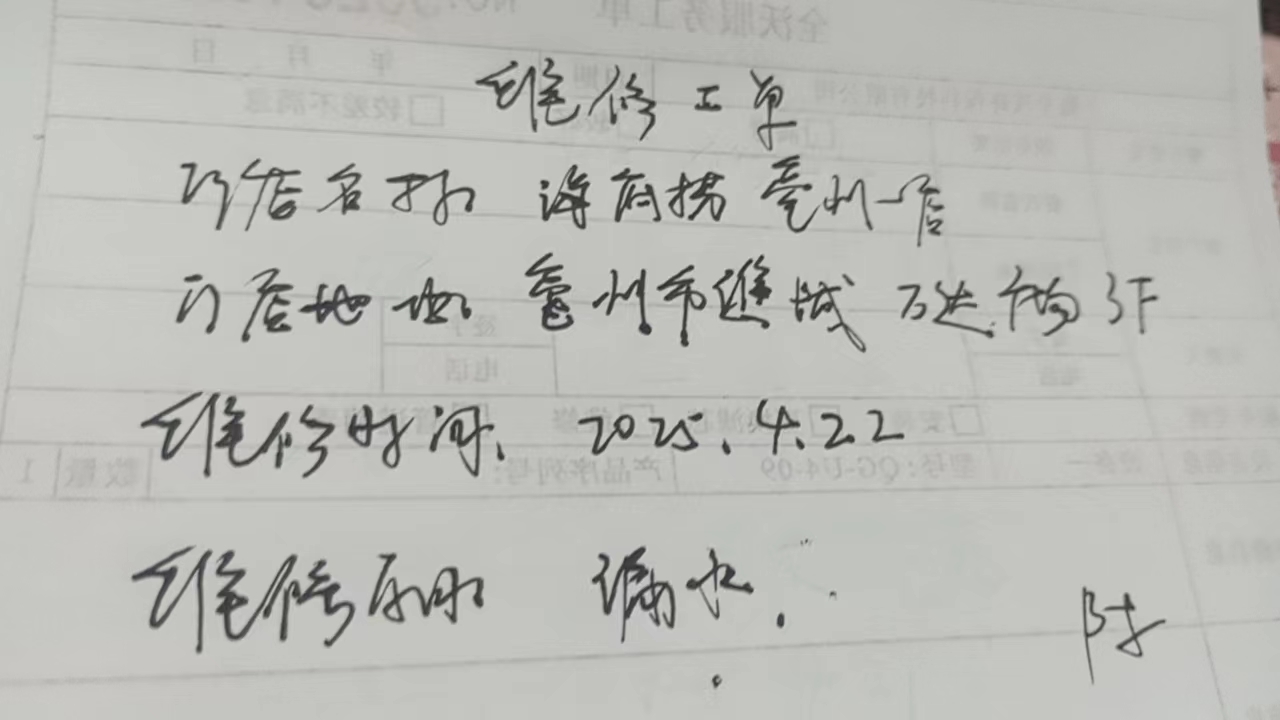 维修工单
门店名称 海底捞亳州一店
门店地址 亳州市谯城万达广场3F
维修时间. 2025.4.22
维修原因 漏水.
陈